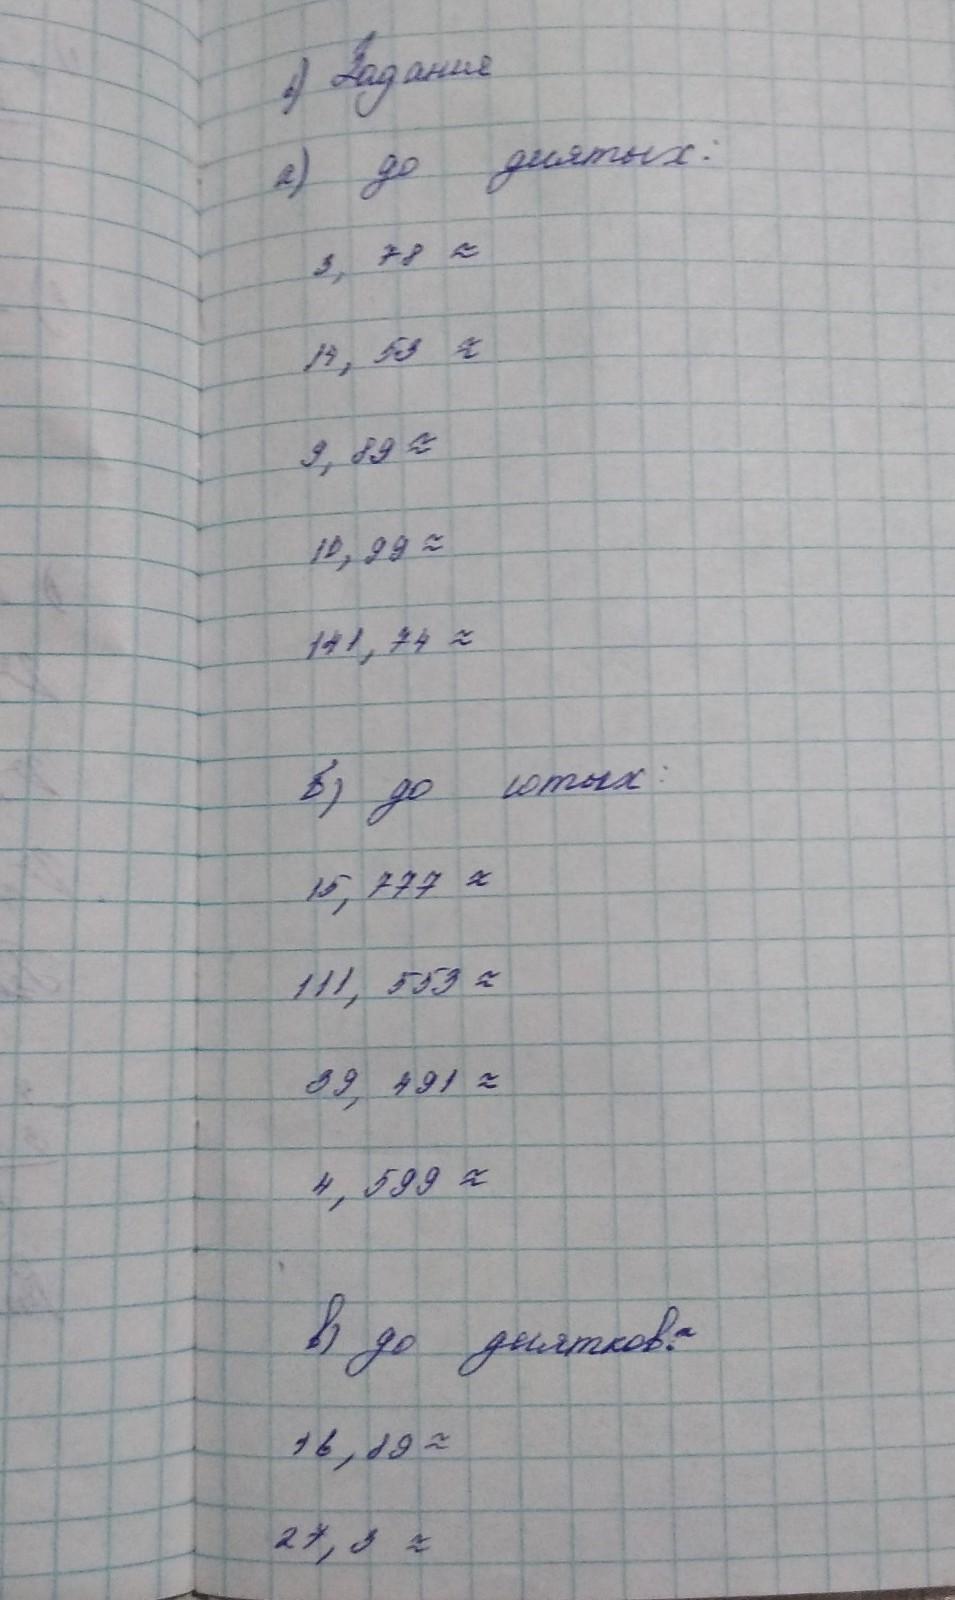 1) Задание
а) до десятых:
3, 78 ≈
14, 53 ≈
9, 89 ≈
10, 99 ≈
141, 74 ≈
б) до сотых:
15, 777 ≈
111, 553 ≈
39, 491 ≈
4, 599 ≈
в) до десятков:
16, 89 ≈
27, 3 ≈